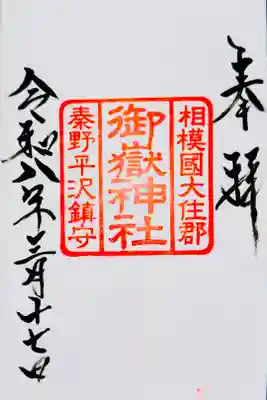 奉拝
相模國大住郡
御嶽神社
秦野平沢鎮守
令和八年二月十七日